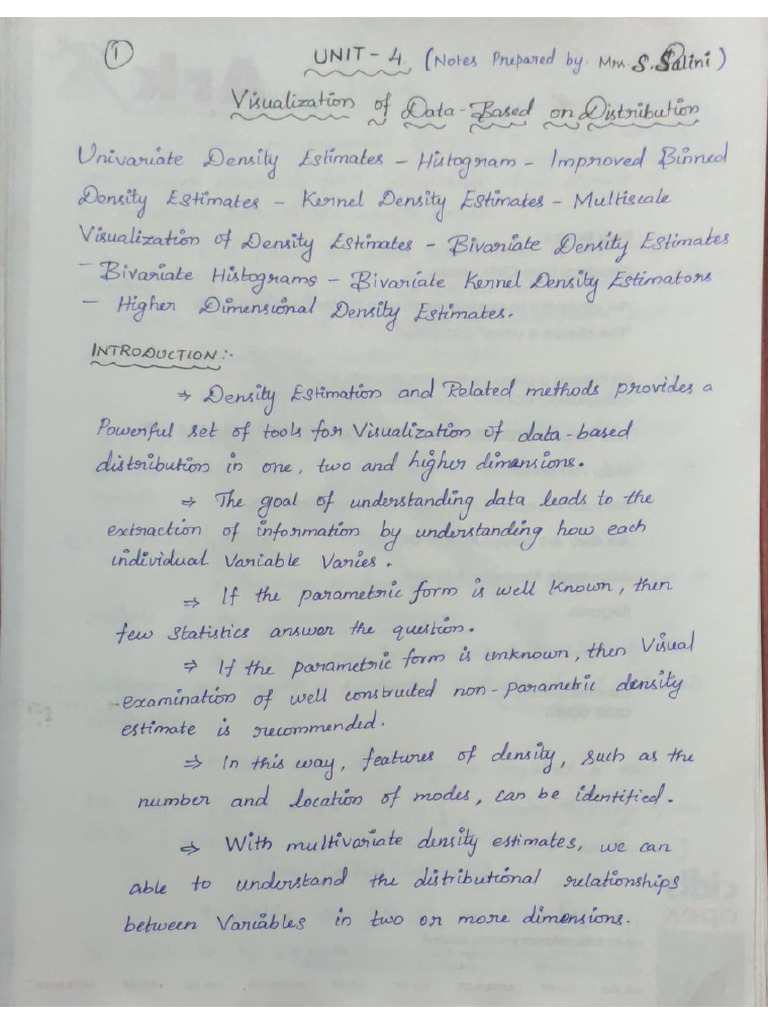 1 UNIT - 4 (Notes Prepared by Mrs. S. Salini)
Visualization of Data-Based on Distribution
Univariate Density Estimates - Histogram - Improved Binned
Density Estimates - Kernel Density Estimates - Multiscale
Visualization of Density Estimates - Bivariate Density Estimates
- Bivariate Histograms - Bivariate Kernel Density Estimators
- Higher Dimensional Density Estimates.
INTRODUCTION:-
⇒ Density Estimation and Related methods provides a
Powerful set of tools for Visualization of data-based
distribution in one, two and higher dimensions.
⇒ The goal of understanding data leads to the
extraction of information by understanding how each
individual Variable Varies.
⇒ If the parametric form is well known, then
few Statistics answer the question.
⇒ If the parametric form is unknown, then Visual
examination of well constructed non-parametric density
estimate is recommended.
⇒ In this way, features of density, such as the
number and location of modes, can be identified.
⇒ With multivariate density estimates, we can
able to understand the distributional relationships
between Variables in two or more dimensions.